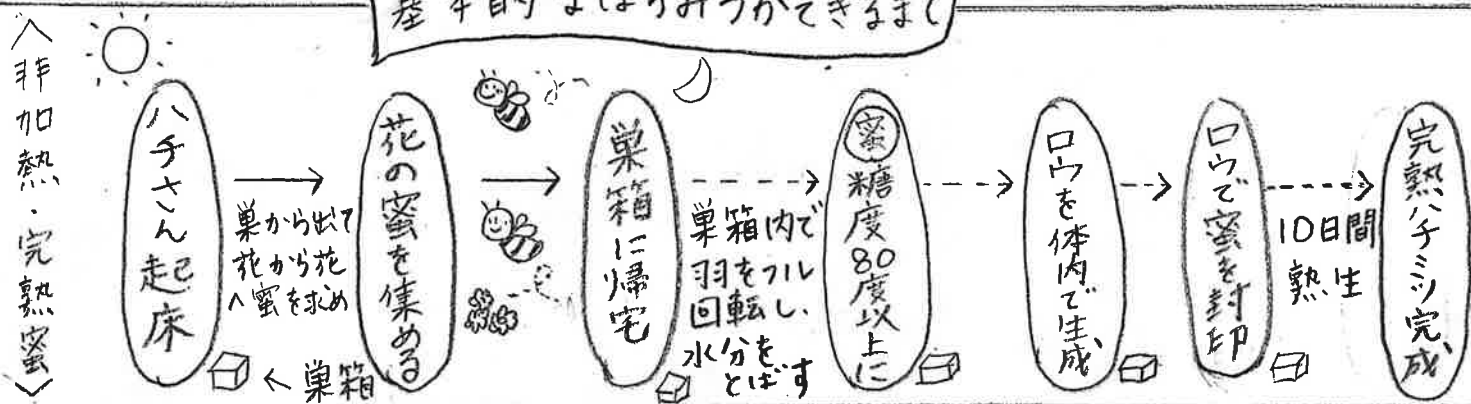 基本的なはちみつができるまで
〈非加熱・完熟蜜〉
ハチさん起床
巣から出て
花から花
へ蜜を求め
←巣箱
花の蜜を集める
巣箱に帰宅
巣箱内で
羽をフル
回転し、
水分を
とばす
蜜糖度80度以上に
ロウを体内で生成
ロウで蜜を封印
10日間
熟生
完熟ハチミツ完成